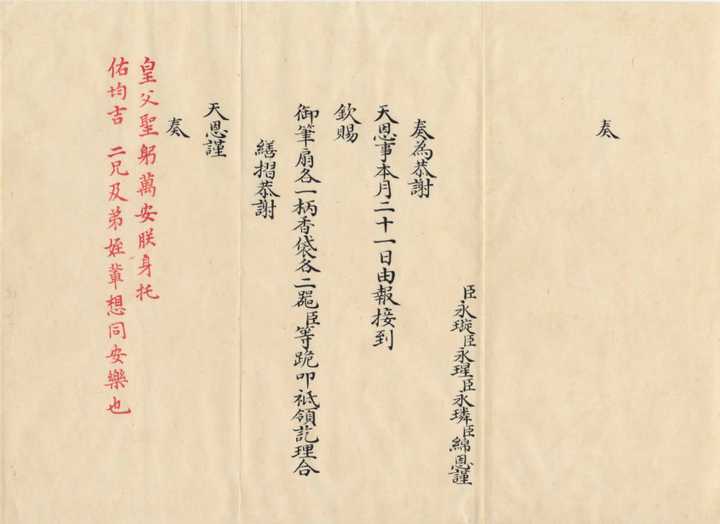 奏
臣永璇臣永瑆臣永璘臣綿恩謹
奏為恭謝
天恩事本月二十一日由報接到
欽賜
御筆扇各一柄香袋各二噐臣等跪叩祗領訖理合
繕摺恭謝
天恩謹
奏
皇父聖躬萬安朕身托
佑均吉 二兄及弟姪輩想同安樂也